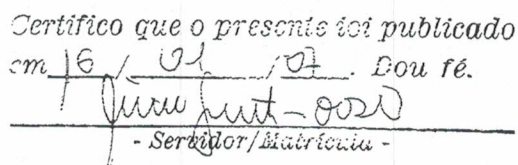 Certifico que o presente foi publicado
em 16 / 01 / 07. Dou fé.
- Servidor/Matrícula -